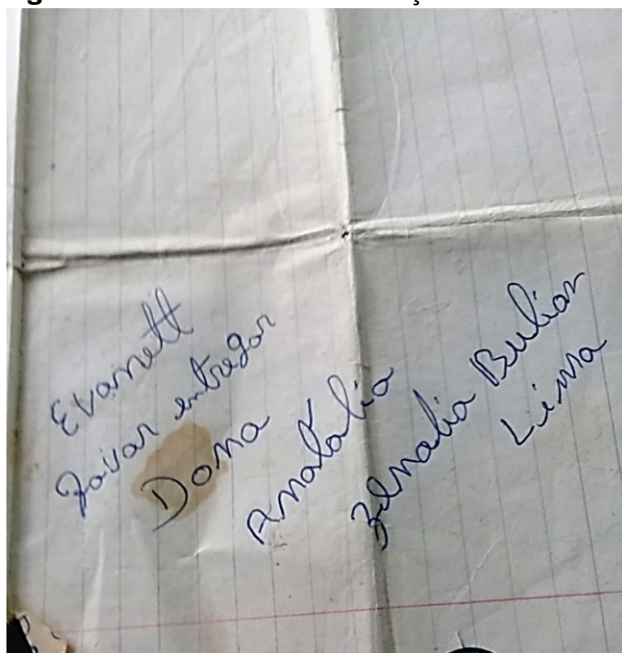 Evanett
Favor entregar
Dona
Anatalia
Zelnalia Bulian
Lima